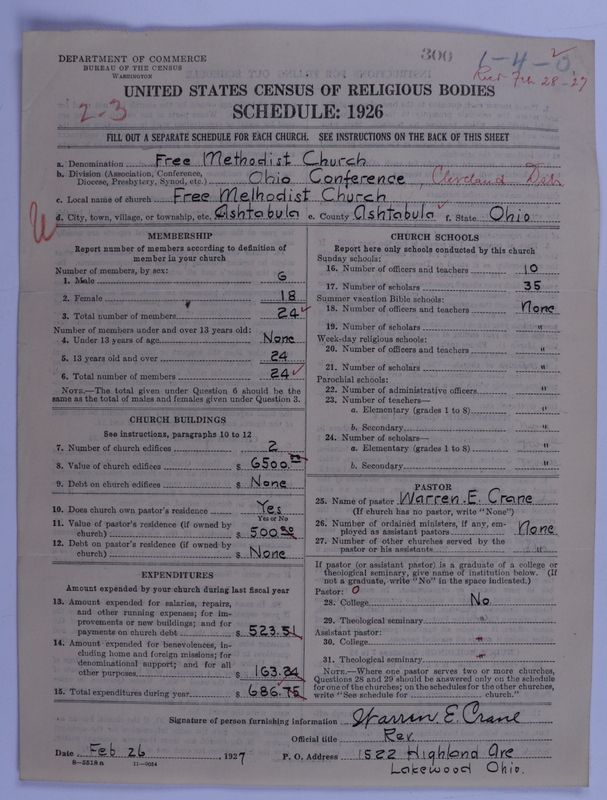 300
1-4-0
Recd Feb 28-27
DEPARTMENT OF COMMERCE
BUREAU OF THE CENSUS
WASHINGTON
UNITED STATES CENSUS OF RELIGIOUS BODIES
2-3
SCHEDULE: 1926
FILL OUT A SEPARATE SCHEDULE FOR EACH CHURCH. SEE INSTRUCTIONS ON THE BACK OF THIS SHEET
a. Denomination Free Methodist Church
b. Division (Association, Conference,
Diocese, Presbytery, Synod, etc.) Ohio Conference, Cleveland Dist
c. Local name of church Free Methodist Church
d. City, town, village, or township, etc. Ashtabula e. County Ashtabula f. State Ohio
MEMBERSHIP
Report number of members according to definition of
member in your church
Number of members, by sex:
1. Male 6
2. Female 18
3. Total number of members 24
Number of members under and over 13 years old:
4. Under 13 years of age None
5. 13 years old and over 24
6. Total number of members 24
NOTE.—The total given under Question 6 should be the
same as the total of males and females given under Question 3.
CHURCH BUILDINGS
See instructions, paragraphs 10 to 12
7. Number of church edifices 2
8. Value of church edifices $ 6500.00
9. Debt on church edifices $ None
10. Does church own pastor's residence Yes
Yes or No
11. Value of pastor's residence (if owned by
church) $ 500.00
12. Debt on pastor's residence (if owned by
church) $ None
EXPENDITURES
Amount expended by your church during last fiscal year
13. Amount expended for salaries, repairs,
and other running expenses; for im-
provements or new buildings; and for
payments on church debt $ 523.51
14. Amount expended for benevolences, in-
cluding home and foreign missions; for
denominational support; and for all
other purposes $ 163.24
15. Total expenditures during year $ 686.75
CHURCH SCHOOLS
Report here only schools conducted by this church
Sunday schools:
16. Number of officers and teachers 10
17. Number of scholars 35
Summer vacation Bible schools:
18. Number of officers and teachers None
19. Number of scholars "
Week-day religious schools:
20. Number of officers and teachers "
21. Number of scholars "
Parochial schools:
22. Number of administrative officers "
23. Number of teachers—
a. Elementary (grades 1 to 8) "
b. Secondary "
24. Number of scholars—
a. Elementary (grades 1 to 8) "
b. Secondary "
PASTOR
25. Name of pastor Warren. E. Crane
(If church has no pastor, write "None")
26. Number of ordained ministers, if any, em-
ployed as assistant pastors None
27. Number of other churches served by the
pastor or his assistants "
If pastor (or assistant pastor) is a graduate of a college or
theological seminary, give name of institution below. (If
not a graduate, write "No" in the space indicated.)
Pastor: 0
28. College No
29. Theological seminary "
Assistant pastor:
30. College "
31. Theological seminary "
NOTE.—Where one pastor serves two or more churches,
Questions 28 and 29 should be answered only on the schedule
for one of the churches; on the schedules for the other churches,
write "See schedule for church."
Signature of person furnishing information Warren. E. Crane
Official title Rev.
Date Feb 26, 1927 P. O. Address 1522 Highland Ave
8—5518 a 11—9054 Lakewood Ohio.